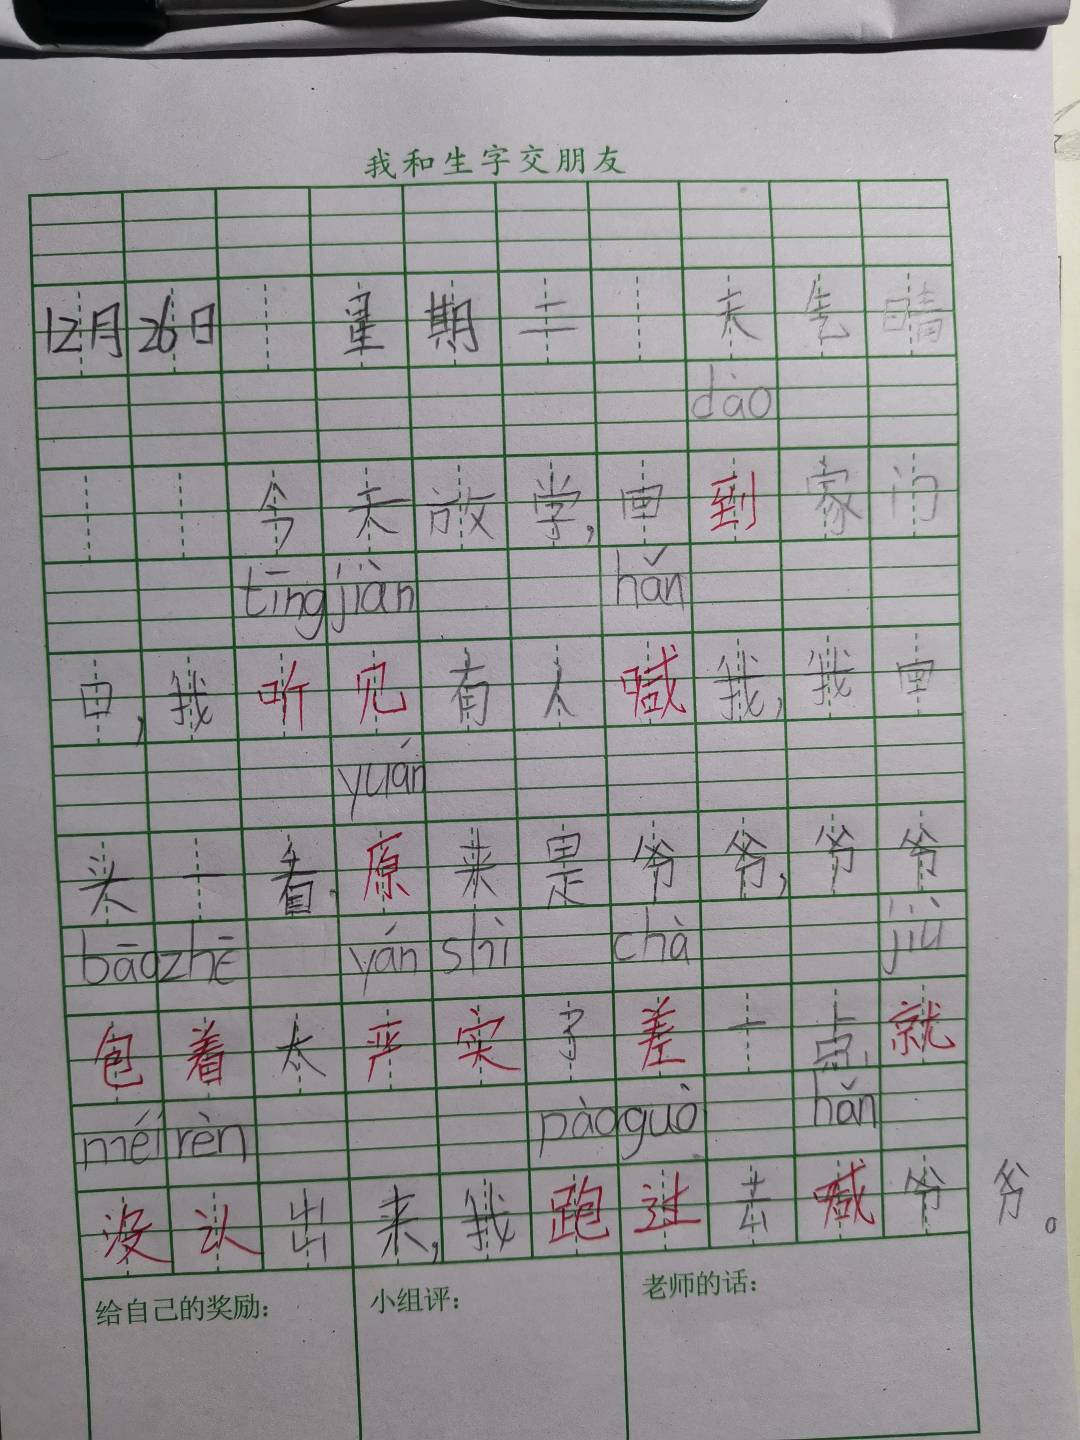 我和生字交朋友
12月 26日 星期二 天气晴
dào
今天放学,回到家门
tīng jiàn hǎn
口,我听见有人喊我,我回
yuán
头一看,原来是爷爷,爷爷
bāo zhē yán shì chà jiù
包着太严实了差一点就
méi rèn pǎo guò hǎn
没认出来,我跑过去喊爷爷。
给自己的奖励:
小组评:
老师的话: